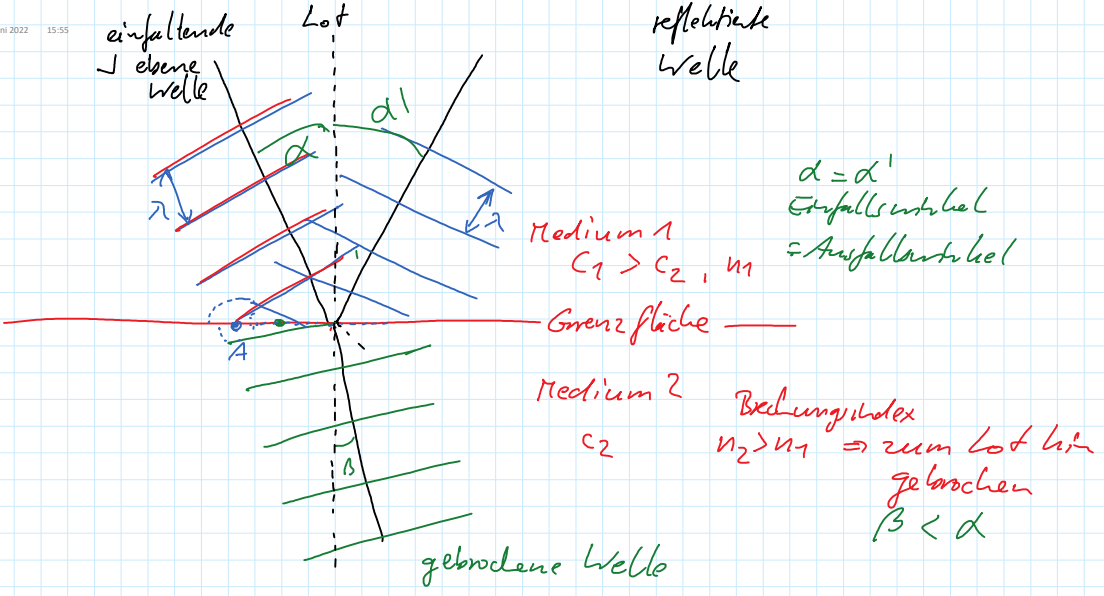 ni 2022 15:55
einfallende
ebene
Welle
Lot
reflektierte
Welle
α
α'
λ
λ
α = α'
Einfallswinkel
= Ausfallswinkel
Medium 1
C1 > C2, n1
Grenzfläche
A
Medium 2
C2
Brechungsindex
n2 > n1 ⇒ zum Lot hin
gebrochen
β < α
β
gebrochene Welle